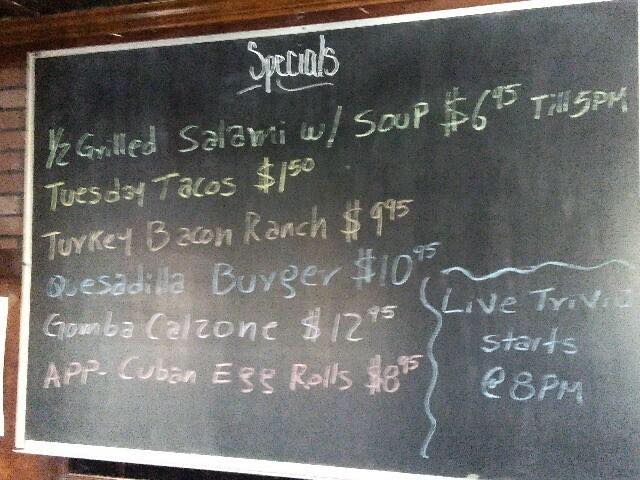 Specials
1/2 Grilled Salami w/ Soup $6.95 Till 5PM
Tuesday Tacos $1.50
Turkey Bacon Ranch $9.95
Quesadilla Burger $10.95
Gomba Calzone $12.95
APP- Cuban Egg Rolls $8.95
Live Trivia
starts
@ 8PM